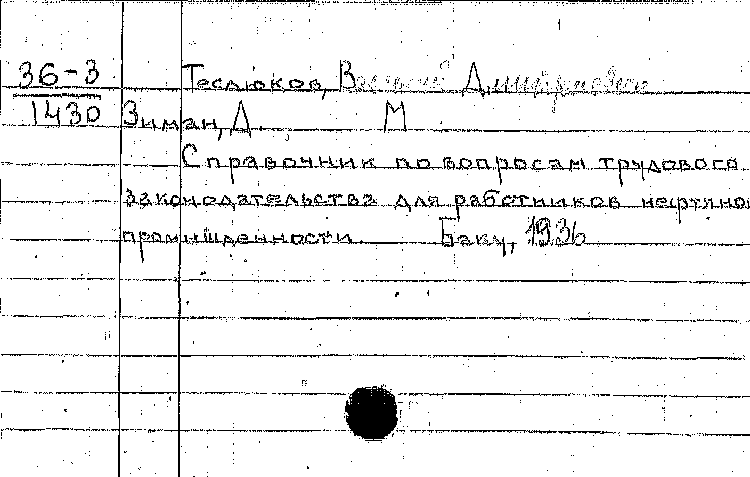 36-3
1430
Теслюков, Василий Дмитриевич
Зиман, Д. М
Справочник по вопросам трудового
законодательства для работников нефтяно
промышленности. Баку, 1936